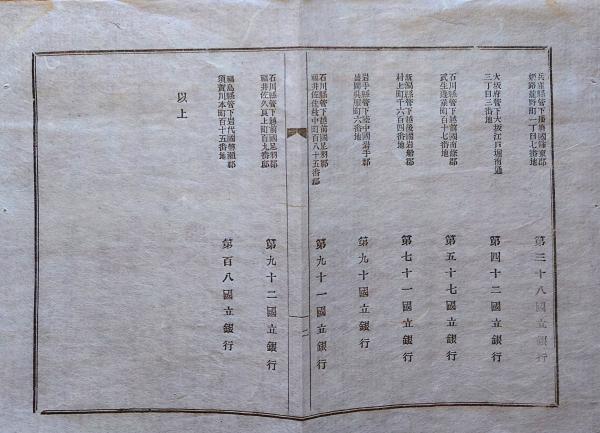 兵庫縣管下播磨國飾東郡
姫路龍野町一丁目七番地
第三十八國立銀行
大坂府管下大坂江戸堀南通
三丁目三番地
第四十二國立銀行
石川縣管下越前國南條郡
武生蓬萊町百十七番地
第五十七國立銀行
新潟縣管下越後國岩船郡
村上町千六百四番地
第七十一國立銀行
岩手縣管下陸中國岩手郡
盛岡吳服町六番地
第九十國立銀行
石川縣管下越前國足羽郡
福井佐佳枝中町百八十五番邸
第九十一國立銀行
石川縣管下越前國足羽郡
福井佐久良上町百九番邸
第九十二國立銀行
福島縣管下岩代國磐瀬郡
須賀川本町百十五番地
第百八國立銀行
以上
二